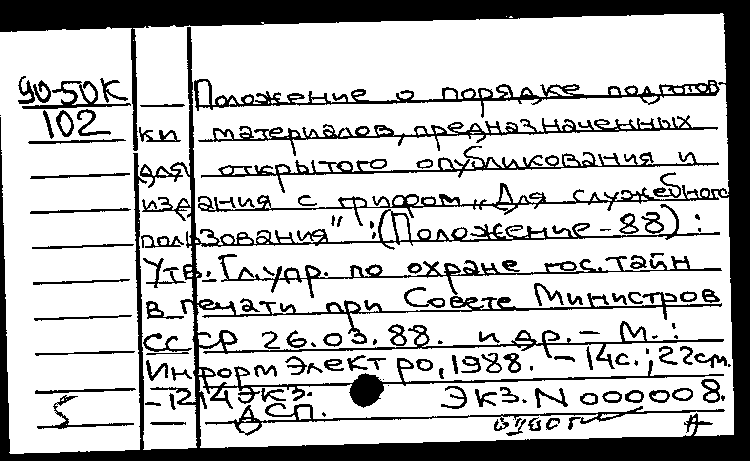 90-50К
102
Положение о порядке подготов-
ки материалов, предназначенных
для открытого опубликования и
издания с грифом „Для служебного
пользования" :(Положение-88) :
Утв. Гл. упр. по охране гос. тайн
в печати при Совете Министров
СССР 26.03.88. и др. - М.:
ИнформЭлектро, 1988. - 14с.; 22см.
- 1214 экз. Экз. N 000008.
5 ДСП.